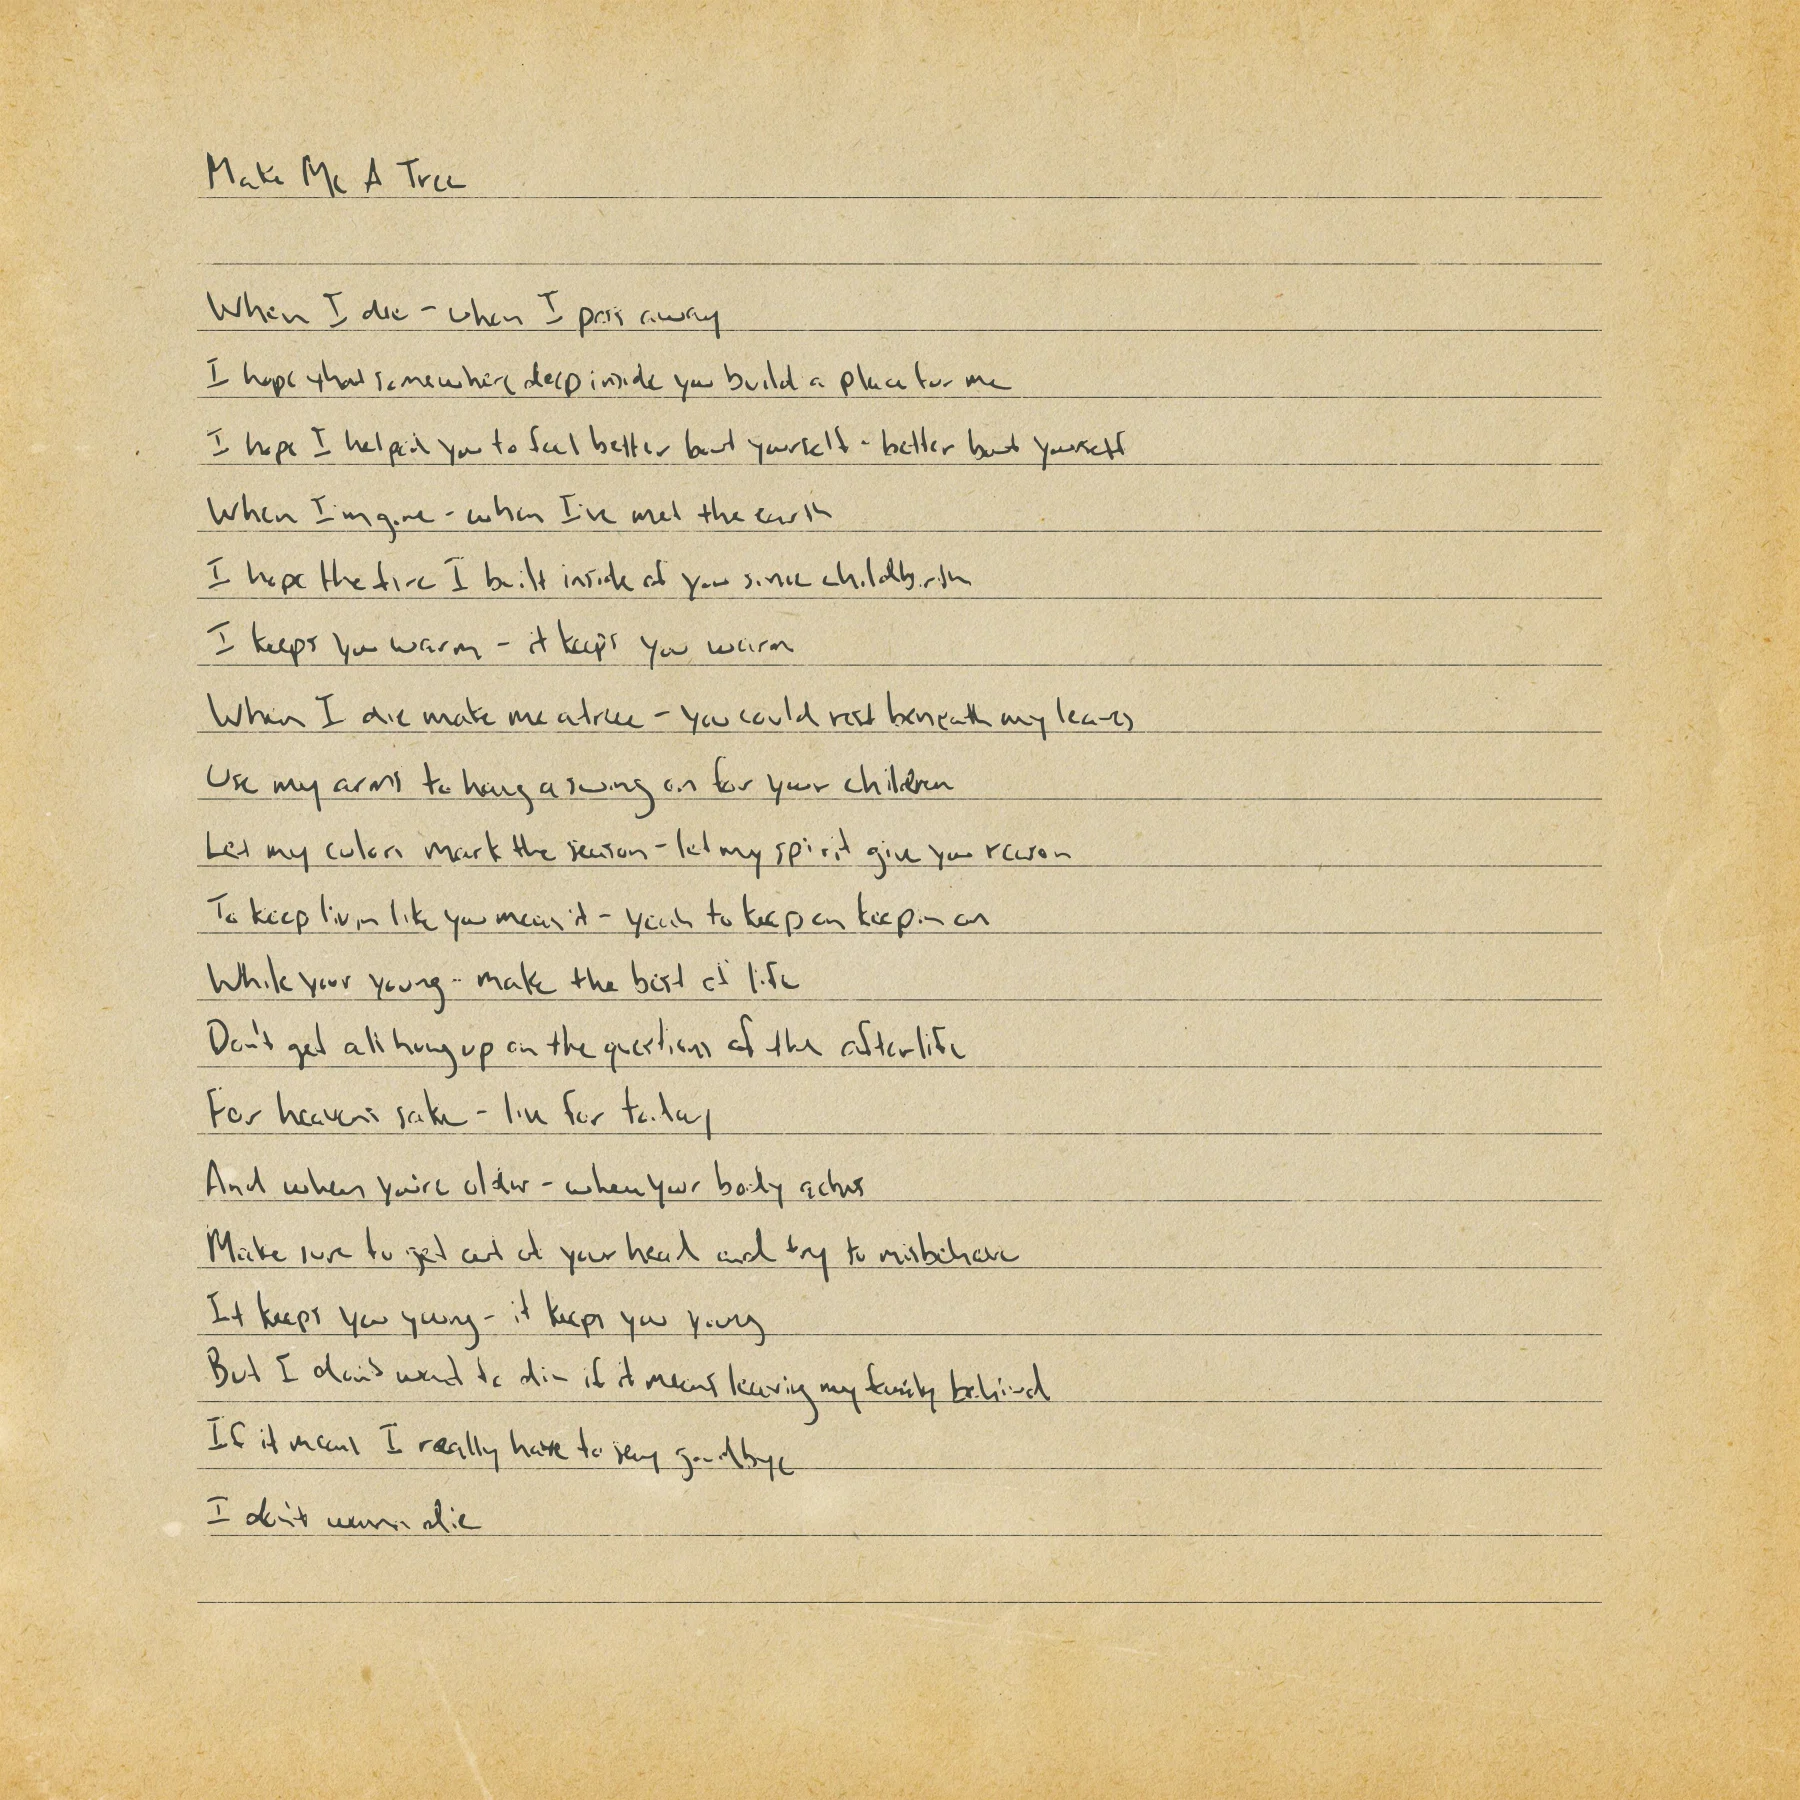 Make Me A Tree
When I die - when I pass away
I hope that somewhere deep inside you build a place for me
I hope I helped you to feel better bout yourself - better bout yourself
When I'm gone - when I've met the earth
I hope the fire I built inside of you since childbirth
I keeps you warm - it keeps you warm
When I die make me a tree - you could rest beneath my leaves
Use my arms to hang a swing on for your children
Let my colors mark the season - let my spirit give you reason
To keep livin like you mean it - yeah to keep on keepin on
While your young - make the best of life
Don't get all hung up on the questions of the afterlife
For heavens sake - live for today
And when you're older - when your body aches
Make sure to get out of your head and try to misbehave
It keeps you young - it keeps you young
But I don't want to die if it means leaving my family behind
If it means I really have to say goodbye
I don't wanna die